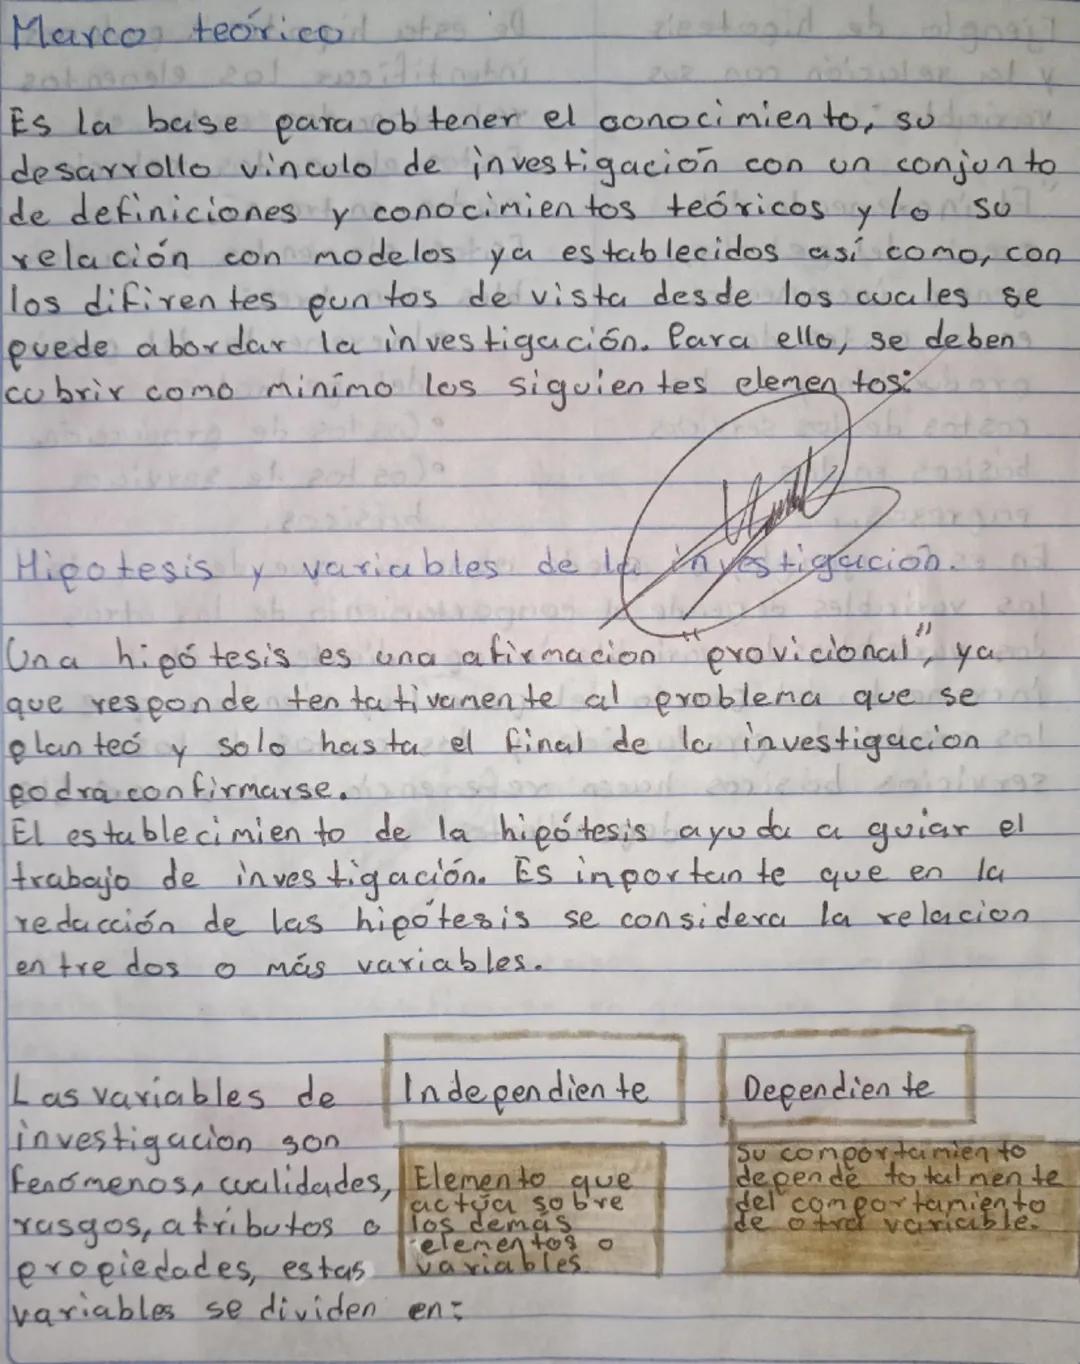 Marco teórico
Es la base para obtener el conocimiento, su
desarrollo vinculo de investigación con un conjunto
de definiciones y conocimientos teóricos y lo su
relación con modelos ya establecidos así como, con
los difirentes puntos de vista desde los cuales se
puede abordar la investigación. Para ello, se deben
cubrir como minímo los siguientes elementos:
Hipotesis y variables de la investigación.
Una hipótesis es una afirmacion "provicional", ya
que responde tentativamente al problema que se
planteó y solo hasta el final de la investigacion
podrá confirmarse.
El establecimiento de la hipótesis ayuda a guiar el
trabajo de investigación. Es inportante que en la
redacción de las hipótesis se considera la relacion
entre dos o más variables.
Las variables de
investigacion son
fenómenos, cualidades,
rasgos, atributos o
propiedades, estas
variables se dividen en:
Independiente
Elemento que
actúa sobre
los demás
elementos o
variables.
Dependiente
Su comportamiento
depende totalmente
del comportamiento
de otra variable.